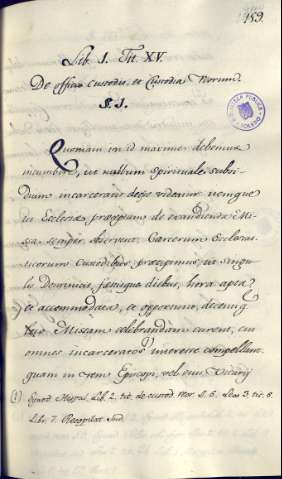 159
Lib. I. Tit. XV.
De officio Custodis, et Custodia Reorum.
§. I.
Quoniam in id maxime debemus
incumbere, ut nullum spirituale subsi-
dium incarceratis deesse videatur, utque
Ecclesiae praeceptum de audienda Mis-
sa semper observent. Carcerum Ecclesias-
ticorum Custodibus praecipimus, ut singu-
lis Dominicis, festisque diebus, hora apta,
et accommodata, et opportuno, decentiq
Missam celebrandam curent, cui
omnes incarceratos interesse compellant
quam in rem Episcopi, vel eius Vicarij
(1) Synod. Hispal. Lib. 2. tit. de custod. reor. §. 6. Leas 3. tit. 8.
Libr. 7. Recopilat. Ind.